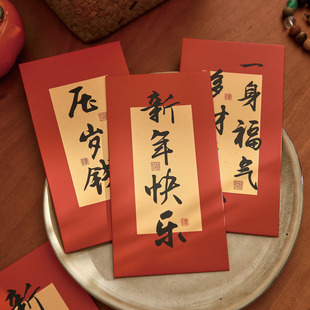 压岁钱
新年快乐
一身福气
多财
新